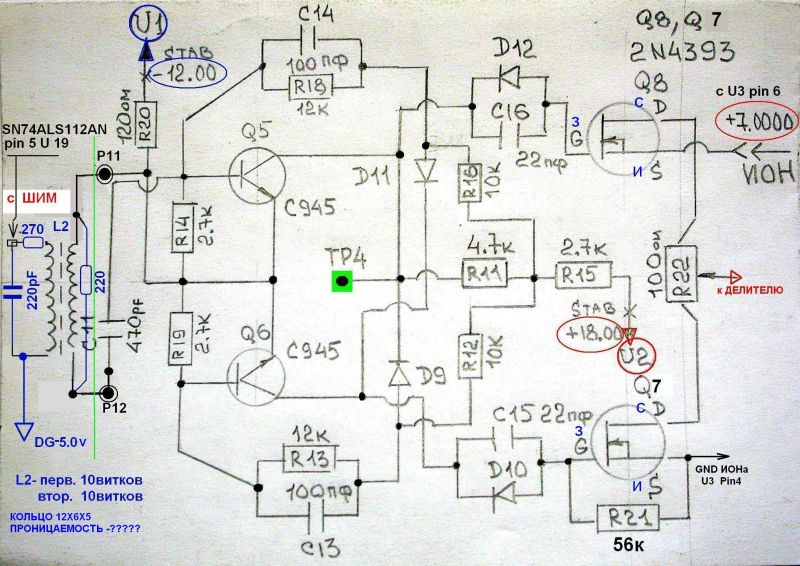 U1
STAB
-12.00
120ом
R20
SN74ALS112AN
pin 5 U 19
P11
с ШИМ
270
L2
220pF
220
C11
470pf
P12
DG-5.0v
L2- перв. 10витков
втор. 10витков
КОЛЬЦО 12X6X5
ПРОНИЦАЕМОСТЬ -?????
C14
100пф
R18
12К
Q5
C945
R14
2.7К
R19
2.7К
Q6
C945
12К
R13
100пф
C13
D11
TP4
D9
D12
C16
22пф
R16
10К
4.7К
R11
2.7К
R15
R12
10К
STAB
+18.00
U2
C15 22пф
D10
Q8, Q 7
2N4393
Q8
с
D
З
G
и
S
с U3 pin 6
+7.0000
ИОН
100ом
R22
К ДЕЛИТЕЛЮ
Q7
с
D
З
G
и
S
GND ИОНа
U3 Pin4
R21
56к